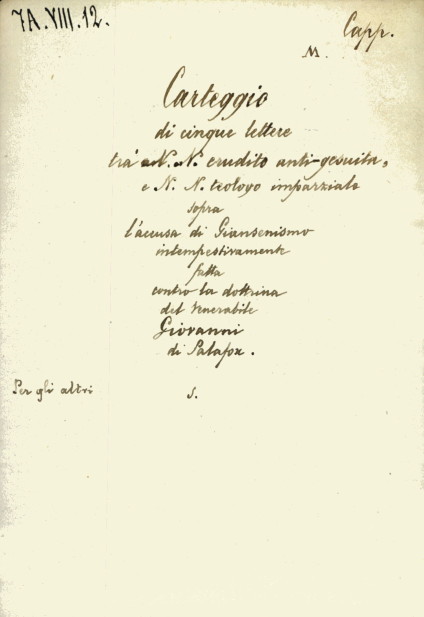 7A.VIII.12.
Capp.
M.
Carteggio
di cinque lettere
trà N. N. erudito anti-gesuita,
e N. N. teologo imparziale
sopra
l'accusa di Giansenismo
intempestivamente
fatta
contro la dottrina
del Venerabile
Giovanni
di Palafox.
Per gli altri
s.